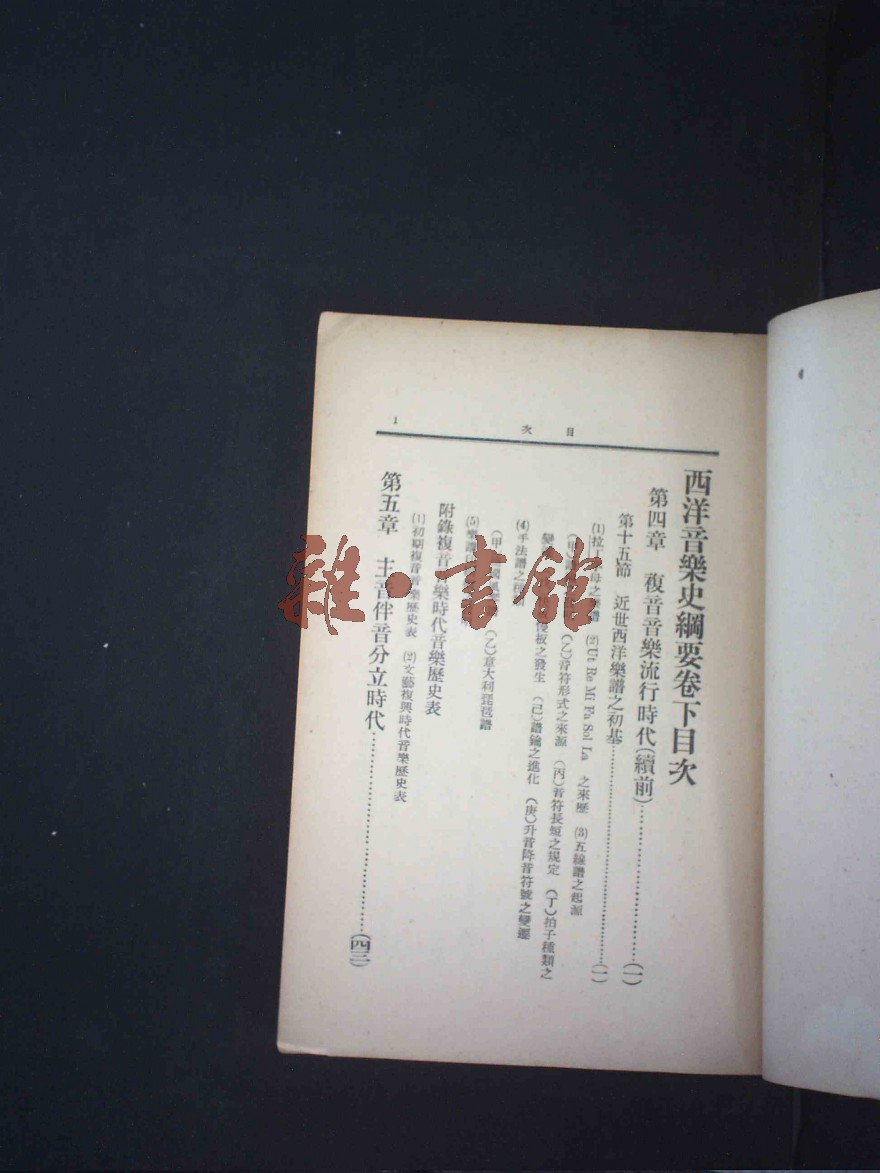 目次
1
西洋音樂史綱要卷下目次
第四章　複音音樂流行時代(續前)…………(一)
第十五節　近世西洋樂譜之初基…………(一)
(1)拉丁 母之 譜　(2)Ut Re Mi Fa Sol La 之來歷　(3)五線譜之起源
(甲) (乙)音符形式之來源　(丙)音符長短之規定　(丁)拍子種類之
變 板之發生　(己)譜鑰之進化　(庚)升音降音符號之變遷
(4)手法譜之
(甲) (乙)意大利琵琶譜
(5)樂譜印
附錄複音音樂時代音樂歷史表
(1)初期複音音樂歷史表　(2)文藝復興時代音樂歷史表
第五章　主音伴音分立時代…………(四三)
雜·書館